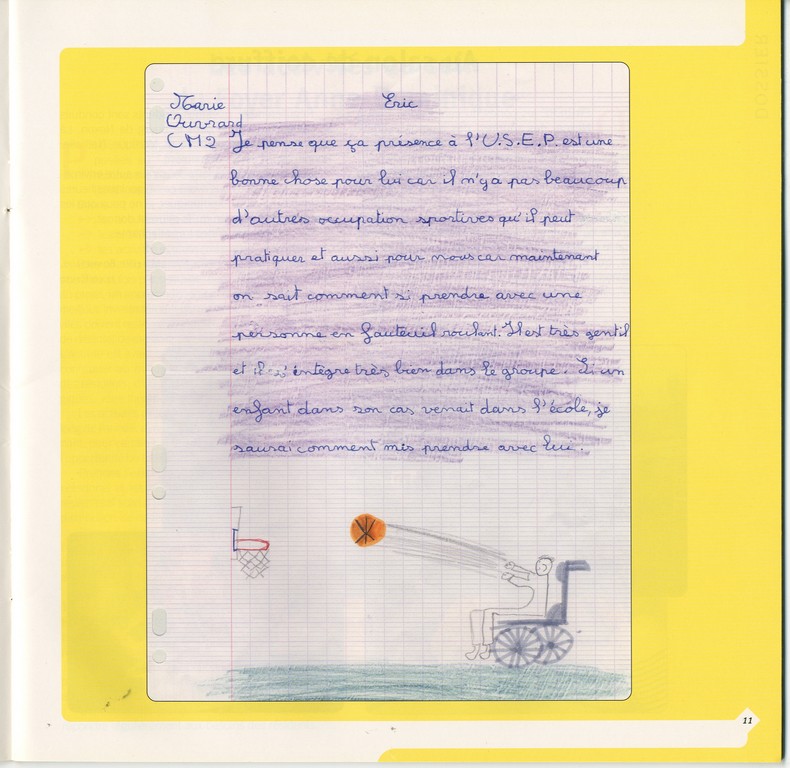 Marie
Ouvrard
CM2
Eric
Je pense que ça présence à l'U.S.E.P. est une
bonne chose pour lui car il n'y a pas beaucoup
d'autres occupation sportives qu'il peut
pratiquer et aussi pour nous car maintenant
on sait comment si prendre avec une
personne en fauteuil roulant. Il est très gentil
et il s'intègre très bien dans le groupe. Si un
enfant dans son cas venait dans l'école, je
saurai comment mis prendre avec lui.
DOSSIER
11